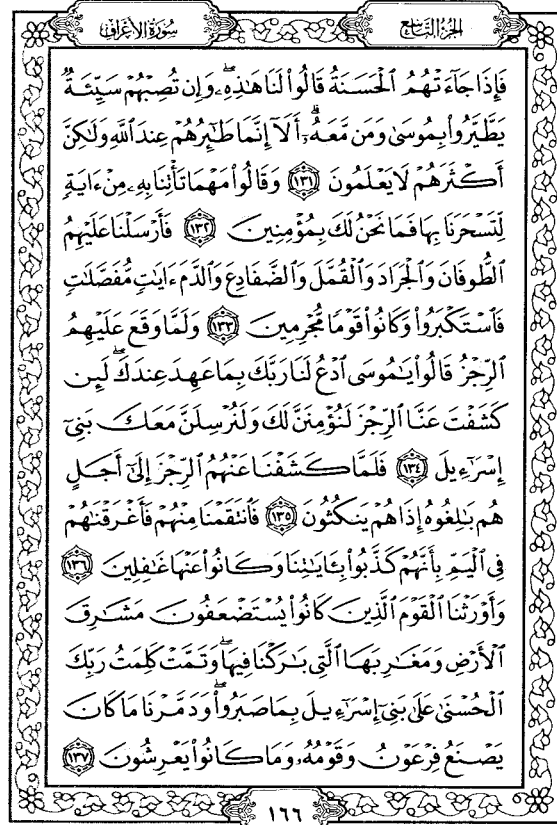 سُورَةُ الأَعۡرَافِ
الجُزۡءُ التَّاسِعُ
فَإِذَا جَآءَتۡهُمُ ٱلۡحَسَنَةُ قَالُواْ لَنَا هَٰذِهِۦۖ وَإِن تُصِبۡهُمۡ سَيِّئَةٞ
يَطَّيَّرُواْ بِمُوسَىٰ وَمَن مَّعَهُۥٓۗ أَلَآ إِنَّمَا طَٰٓئِرُهُمۡ عِندَ ٱللَّهِ وَلَٰكِنَّ
أَكۡثَرَهُمۡ لَا يَعۡلَمُونَ ١٣١ وَقَالُواْ مَهۡمَا تَأۡتِنَا بِهِۦ مِنۡ ءَايَةٖ
لِّتَسۡحَرَنَا بِهَا فَمَا نَحۡنُ لَكَ بِمُؤۡمِنِينَ ١٣٢ فَأَرۡسَلۡنَا عَلَيۡهِمُ
ٱلطُّوفَانَ وَٱلۡجَرَادَ وَٱلۡقُمَّلَ وَٱلضَّفَادِعَ وَٱلدَّمَ ءَايَٰتٖ مُّفَصَّلَٰتٖ
فَٱسۡتَكۡبَرُواْ وَكَانُواْ قَوۡمٗا مُّجۡرِمِينَ ١٣٣ وَلَمَّا وَقَعَ عَلَيۡهِمُ
ٱلرِّجۡزُ قَالُواْ يَٰمُوسَى ٱدۡعُ لَنَا رَبَّكَ بِمَا عَهِدَ عِندَكَۖ لَئِن
كَشَفۡتَ عَنَّا ٱلرِّجۡزَ لَنُؤۡمِنَنَّ لَكَ وَلَنُرۡسِلَنَّ مَعَكَ بَنِيٓ
إِسۡرَٰٓءِيلَ ١٣٤ فَلَمَّا كَشَفۡنَا عَنۡهُمُ ٱلرِّجۡزَ إِلَىٰٓ أَجَلٍ
هُم بَٰلِغُوهُ إِذَا هُمۡ يَنكُثُونَ ١٣٥ فَٱنتَقَمۡنَا مِنۡهُمۡ فَأَغۡرَقۡنَٰهُمۡ
فِي ٱلۡيَمِّ بِأَنَّهُمۡ كَذَّبُواْ بِـَٔايَٰتِنَا وَكَانُواْ عَنۡهَا غَٰفِلِينَ ١٣٦
وَأَوۡرَثۡنَا ٱلۡقَوۡمَ ٱلَّذِينَ كَانُواْ يُسۡتَضۡعَفُونَ مَشَٰرِقَ
ٱلۡأَرۡضِ وَمَغَٰرِبَهَا ٱلَّتِي بَٰرَكۡنَا فِيهَاۖ وَتَمَّتۡ كَلِمَتُ رَبِّكَ
ٱلۡحُسۡنَىٰ عَلَىٰ بَنِيٓ إِسۡرَٰٓءِيلَ بِمَا صَبَرُواْۖ وَدَمَّرۡنَا مَا كَانَ
يَصۡنَعُ فِرۡعَوۡنُ وَقَوۡمُهُۥ وَمَا كَانُواْ يَعۡرِشُونَ ١٣٧
١٦٦